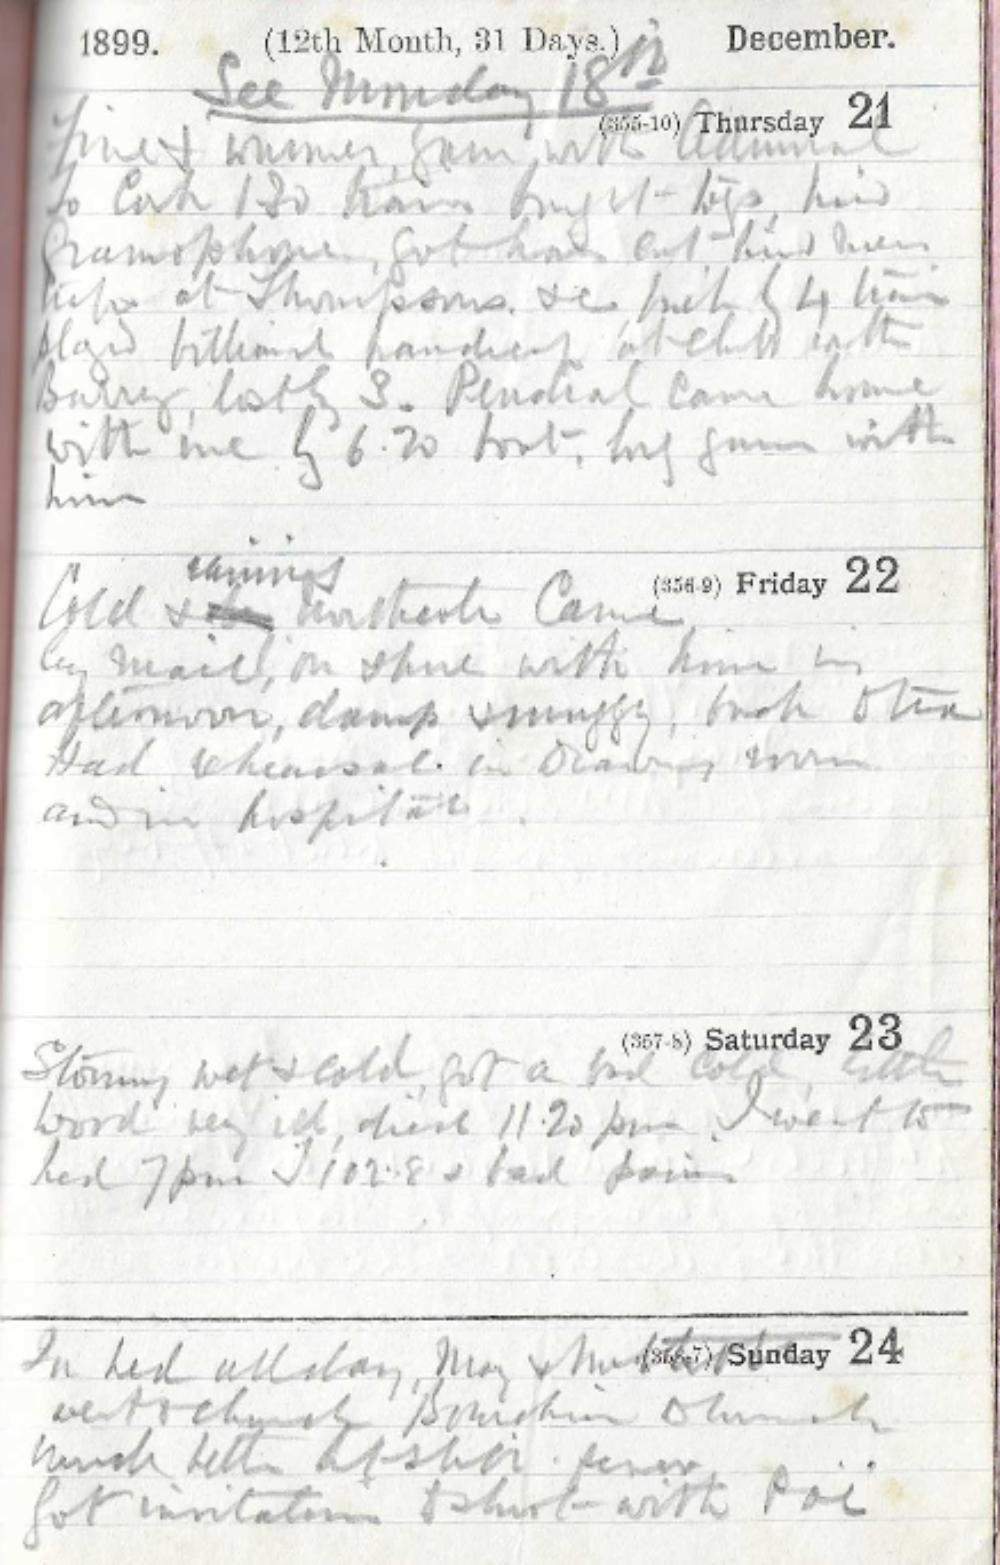 1899. (12th Month, 31 Days.) December.
See Monday 18th
(355-10) Thursday 21
Fine & warmer, with Admiral
to Cork 1 30 train bought togs, hired
Gramophone, got hair cut had
at Thompsons. &c back by 4 train
played billiard handicap at Club with
Barry, lost by 3. came home
with me by 6.20 boat, long with
him
(356-9) Friday 22
raining
Cold & Northcote Came
by mail, on shore with him in
afternoon, damp & muggy, back to tea
Had rehearsal in Drawing room
and in hospital.
(357-8) Saturday 23
Stormy wet & cold, got a bad cold, little
wood very ill, died 11.20 pm. I went to
bed 7pm T 102.8 & bad pains
(358-7) Sunday 24
In bed all day, May &
went to church
much better
Got invitation to shoot with